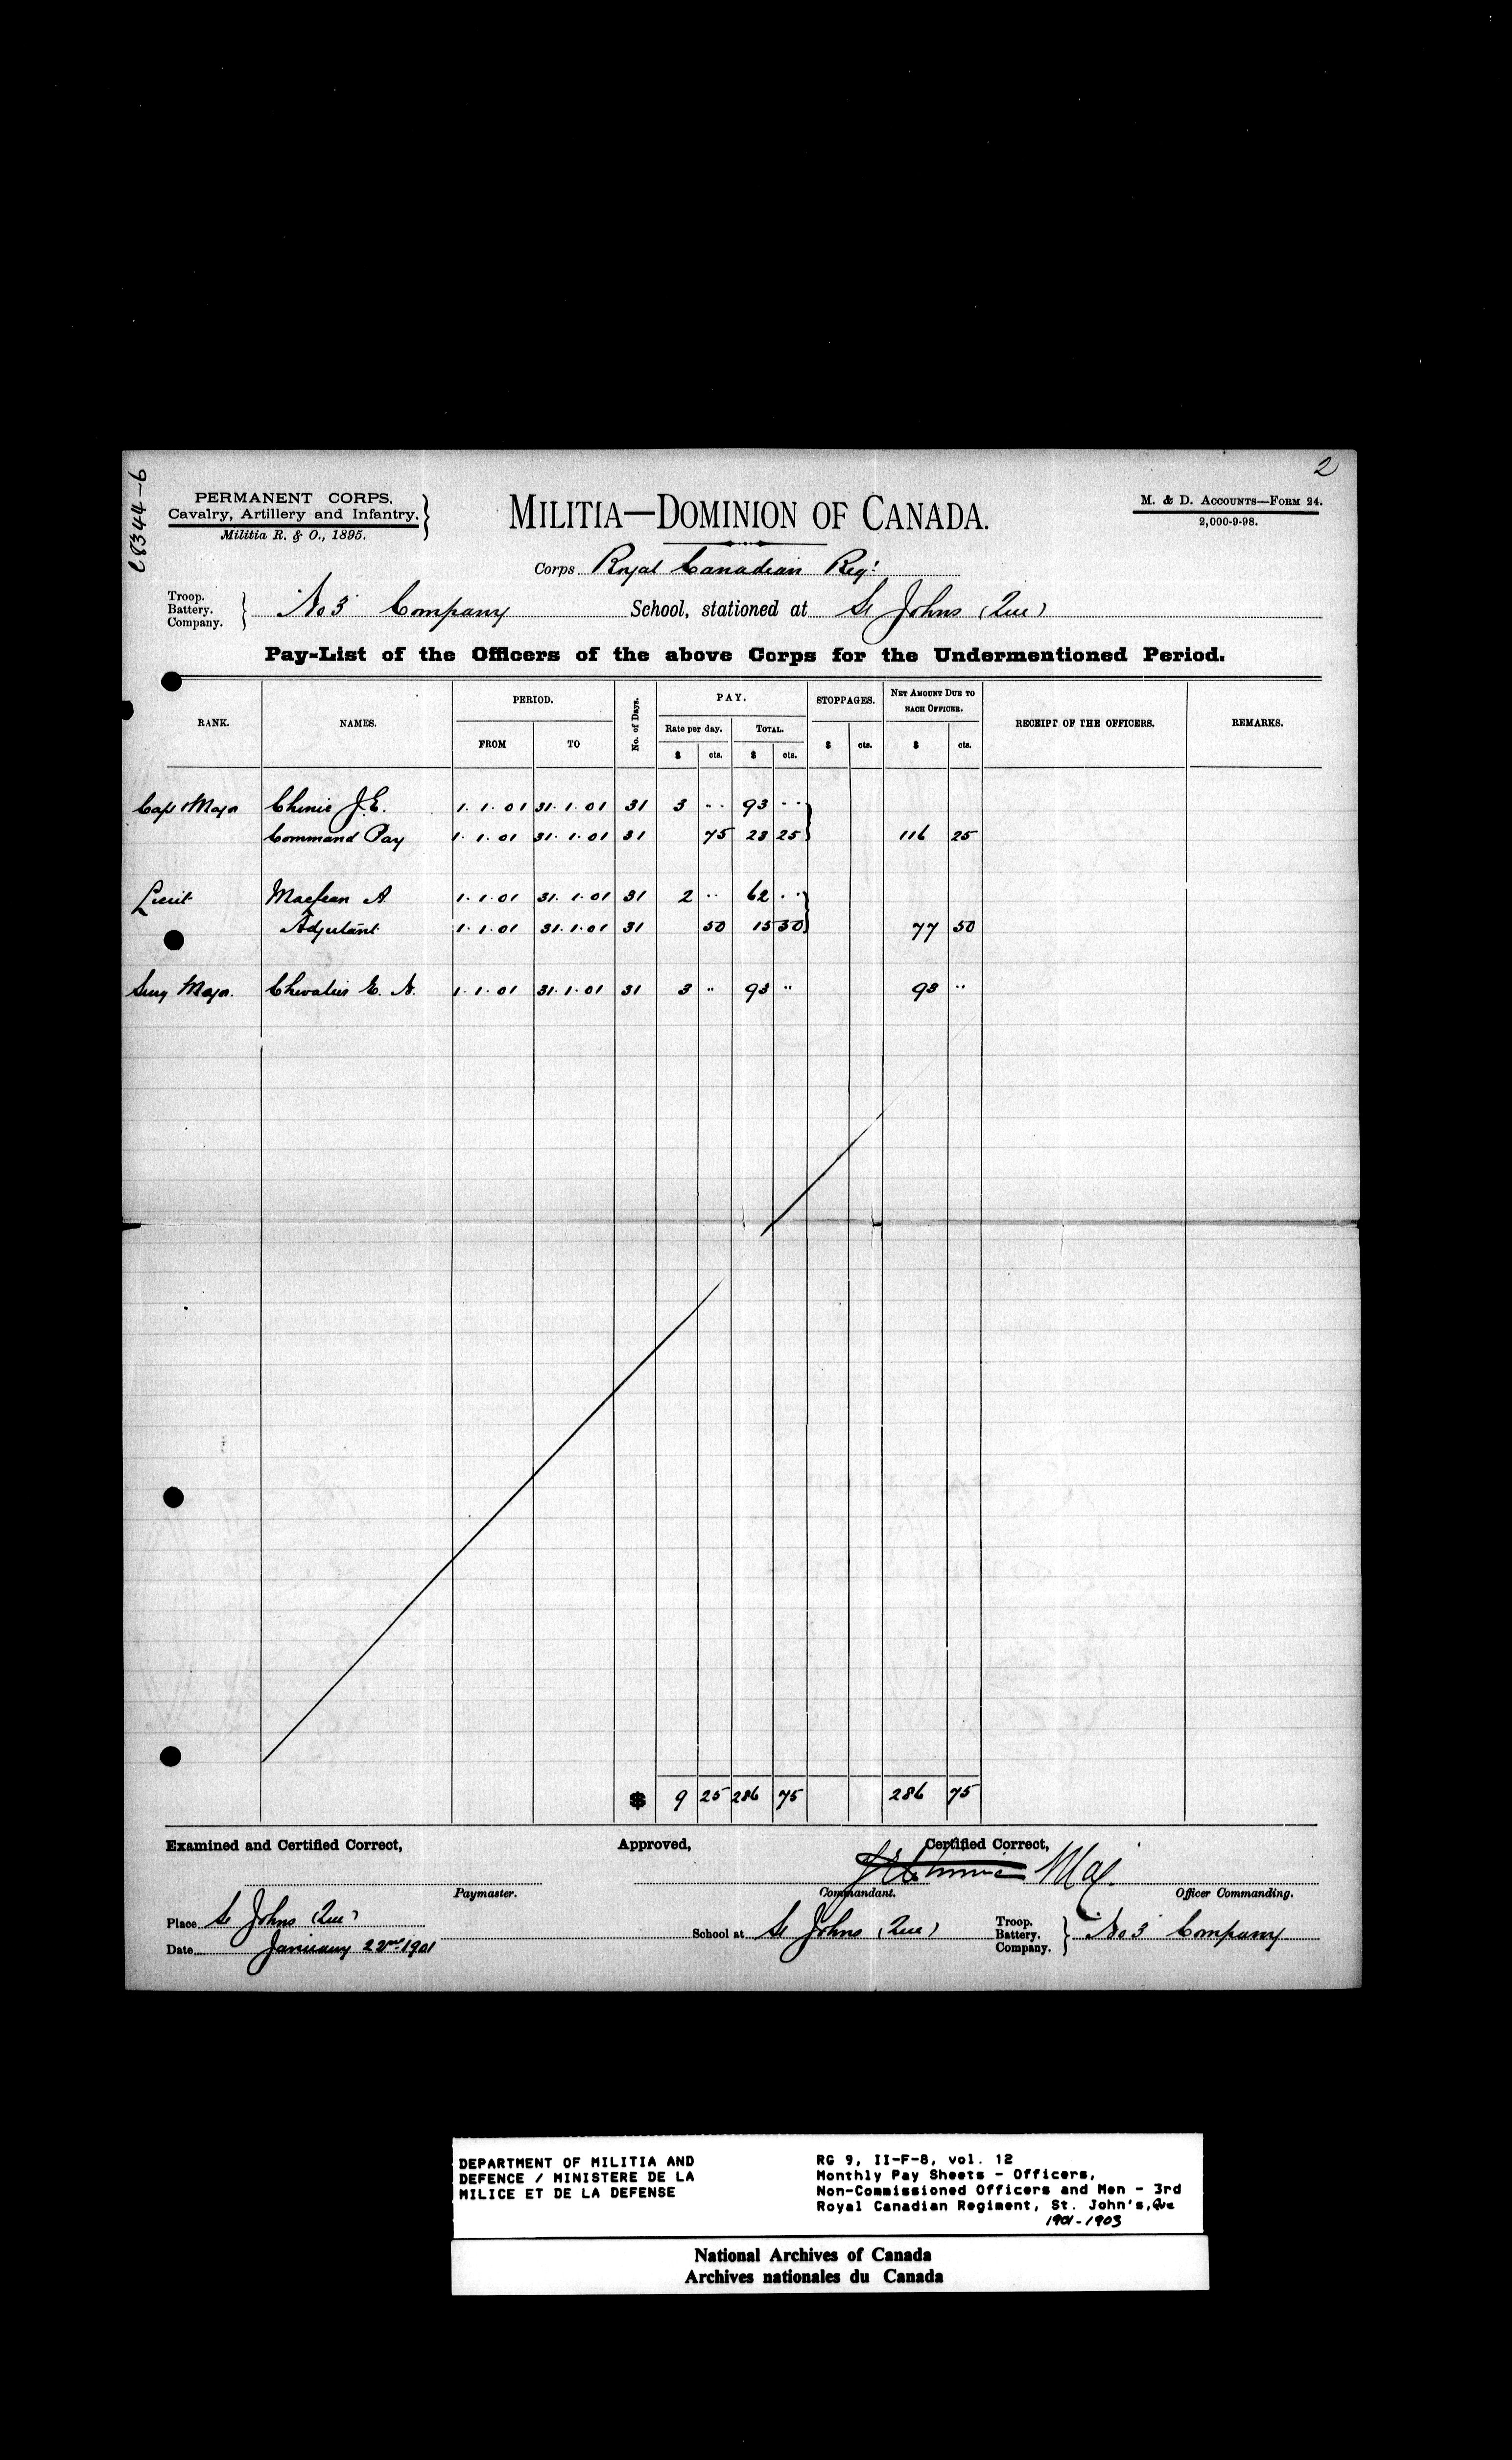 2
C8344-6
PERMANENT CORPS.
Cavalry, Artillery and Infantry.
Militia R. & O., 1895.
MILITIA—DOMINION OF CANADA.
M. & D. ACCOUNTS—FORM 24.
2,000-9-98.
Corps Royal Canadian Regt.
Troop.
Battery.
Company.
No 3 Company School, stationed at St Johns (Que)
Pay-List of the Officers of the above Corps for the Undermentioned Period.
RANK. NAMES. PERIOD. No. of Days. PAY. STOPPAGES. NET AMOUNT DUE TO EACH OFFICER. RECEIPT OF THE OFFICERS. REMARKS.
FROM TO Rate per day. TOTAL.
$ cts. $ cts. $ cts. $ cts.
Capt & Major Chinic J.E. 1. 1. 01 31. 1. 01 31 3 .. 93 ..
Command Pay 1. 1. 01 31. 1. 01 31 75 23 25 116 25
Lieut. MacLean A. 1. 1. 01 31. 1. 01 31 2 .. 62 ..
Adjutant 1. 1. 01 31. 1. 01 31 50 15 50 77 50
Surg Major. Chevalier E. N. 1. 1. 01 31. 1. 01 31 3 .. 93 .. 93 ..
$ 9 25 286 75 286 75
Examined and Certified Correct, Approved, Certified Correct,
J E Chinic Maj.
Paymaster. Commandant. Officer Commanding.
Place St Johns (Que)
Date January 22nd 1901
School at St Johns (Que)
Troop.
Battery.
Company.
No 3 Company
DEPARTMENT OF MILITIA AND
DEFENCE / MINISTERE DE LA
MILICE ET DE LA DEFENSE
RG 9, II-F-8, vol. 12
Monthly Pay Sheets - Officers,
Non-Commissioned Officers and Men - 3rd
Royal Canadian Regiment, St. John's, Que
1901-1903
National Archives of Canada
Archives nationales du Canada